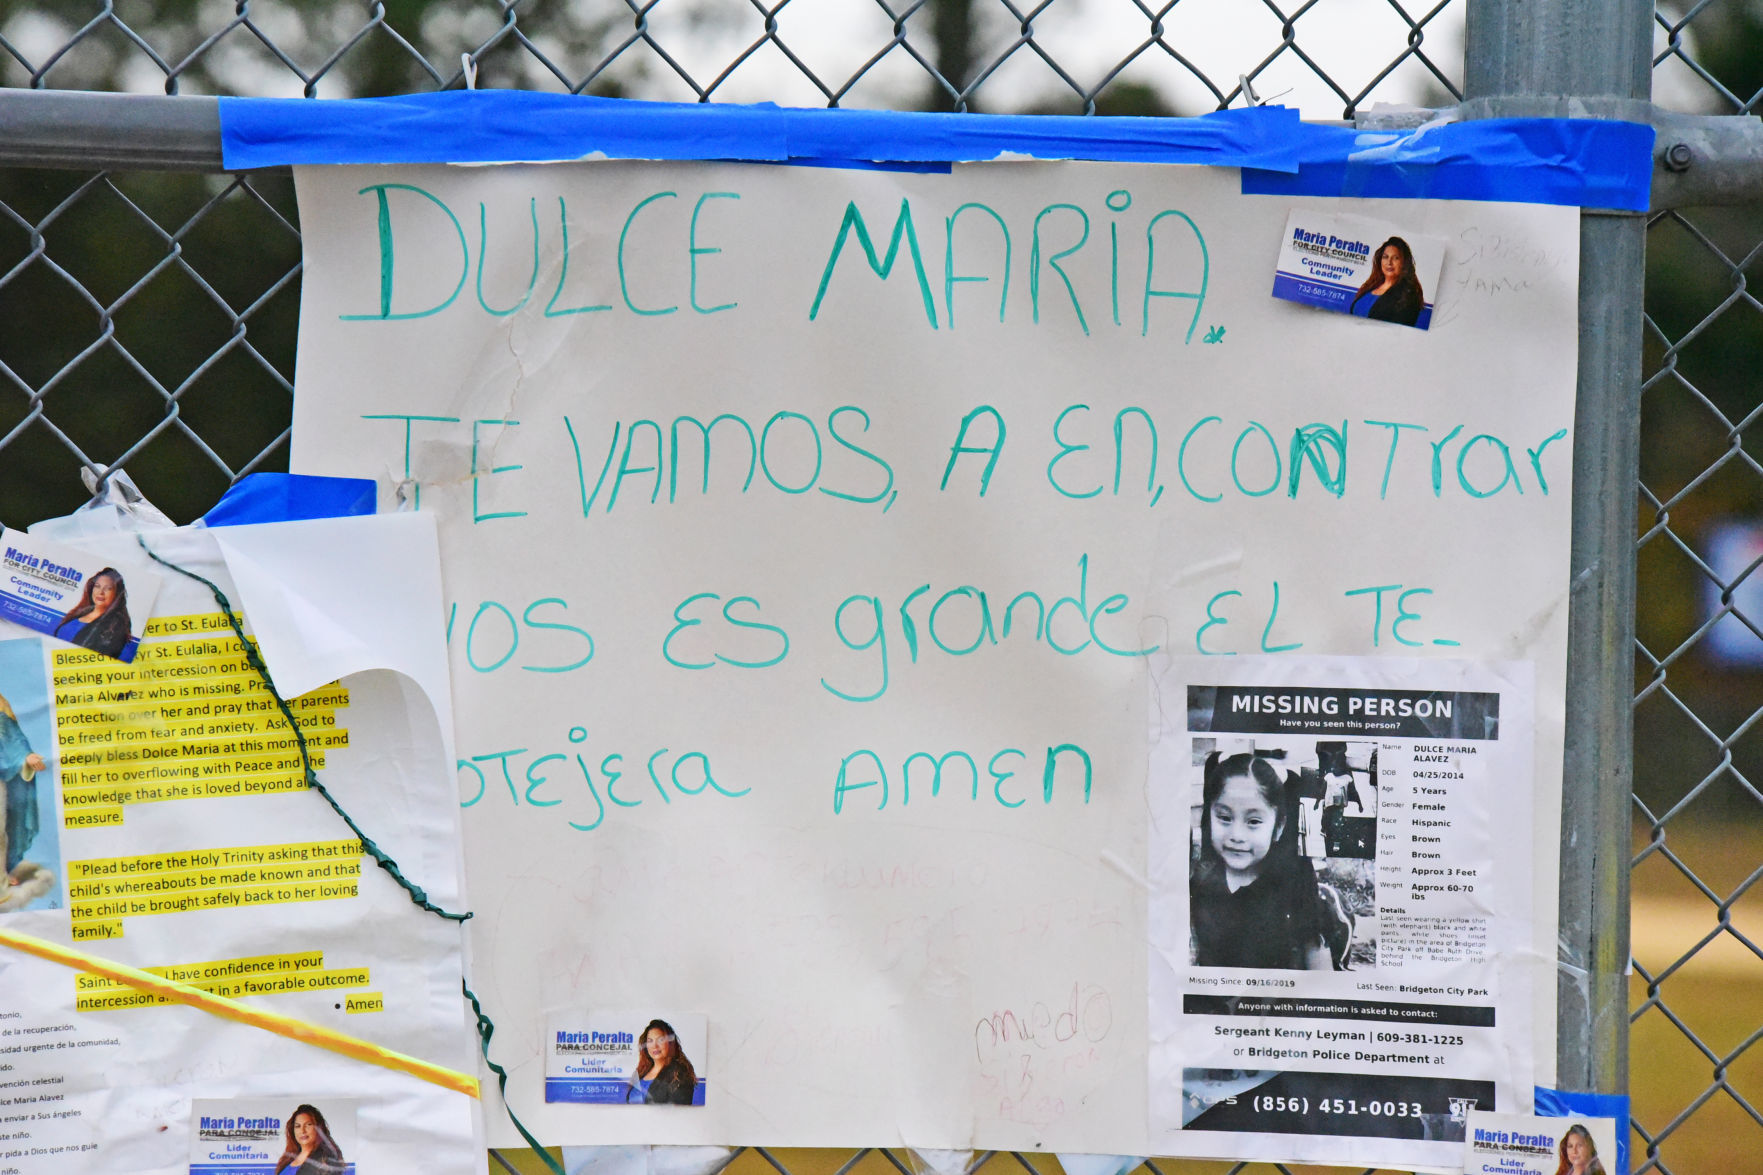 DULCE MARIA.
TE VAMOS, A EN,CONTrar
ES grande EL TE_
AMEN
Maria Peralta
FOR CITY COUNCIL
Community
Leader
732-585-7874
Maria Peralta
FOR CITY COUNCIL
Community
Leader
732-585-7874
to St. Eulalia
Blessed St. Eulalia, I
seeking your intercession on
Maria Alvarez who is missing.
protection over her and pray that her parents
be freed from fear and anxiety. Ask God to
deeply bless Dolce Maria at this moment and
fill her to overflowing with Peace and the
knowledge that she is loved beyond
measure.
"Plead before the Holy Trinity asking that this
child's whereabouts be made known and that
the child be brought safely back to her loving
family."
Saint I have confidence in your
intercession in a favorable outcome.
• Amen
de la recuperación,
urgente de la comunidad,
celestial
Maria Alavez
enviar a Sus ángeles
niño.
pida a Dios que nos guie
niño.
Maria Peralta
PARA CONCEJAL
Lider
Comunitaria
Maria Peralta
PARA CONCEJAL
Lider
Comunitaria
732-585-7874
miedo
MISSING PERSON
Have you seen this person?
Name DULCE MARIA
ALAVEZ
DOB 04/25/2014
Age 5 Years
Gender Female
Race Hispanic
Eyes Brown
Hair Brown
Height Approx 3 Feet
Weight Approx 60-70
lbs
Details
Last seen wearing a yellow shirt
(with elephant) black and white
pants, white shoes (inset
picture) in the area of Bridgeton
City Park off Babe Ruth Drive
behind the Bridgeton High
School
Missing Since: 09/16/2019 Last Seen: Bridgeton City Park
Anyone with information is asked to contact:
Sergeant Kenny Leyman | 609-381-1225
or Bridgeton Police Department at
(856) 451-0033
Maria Peralta
PARA CONCEJAL
Lider
Comunitaria